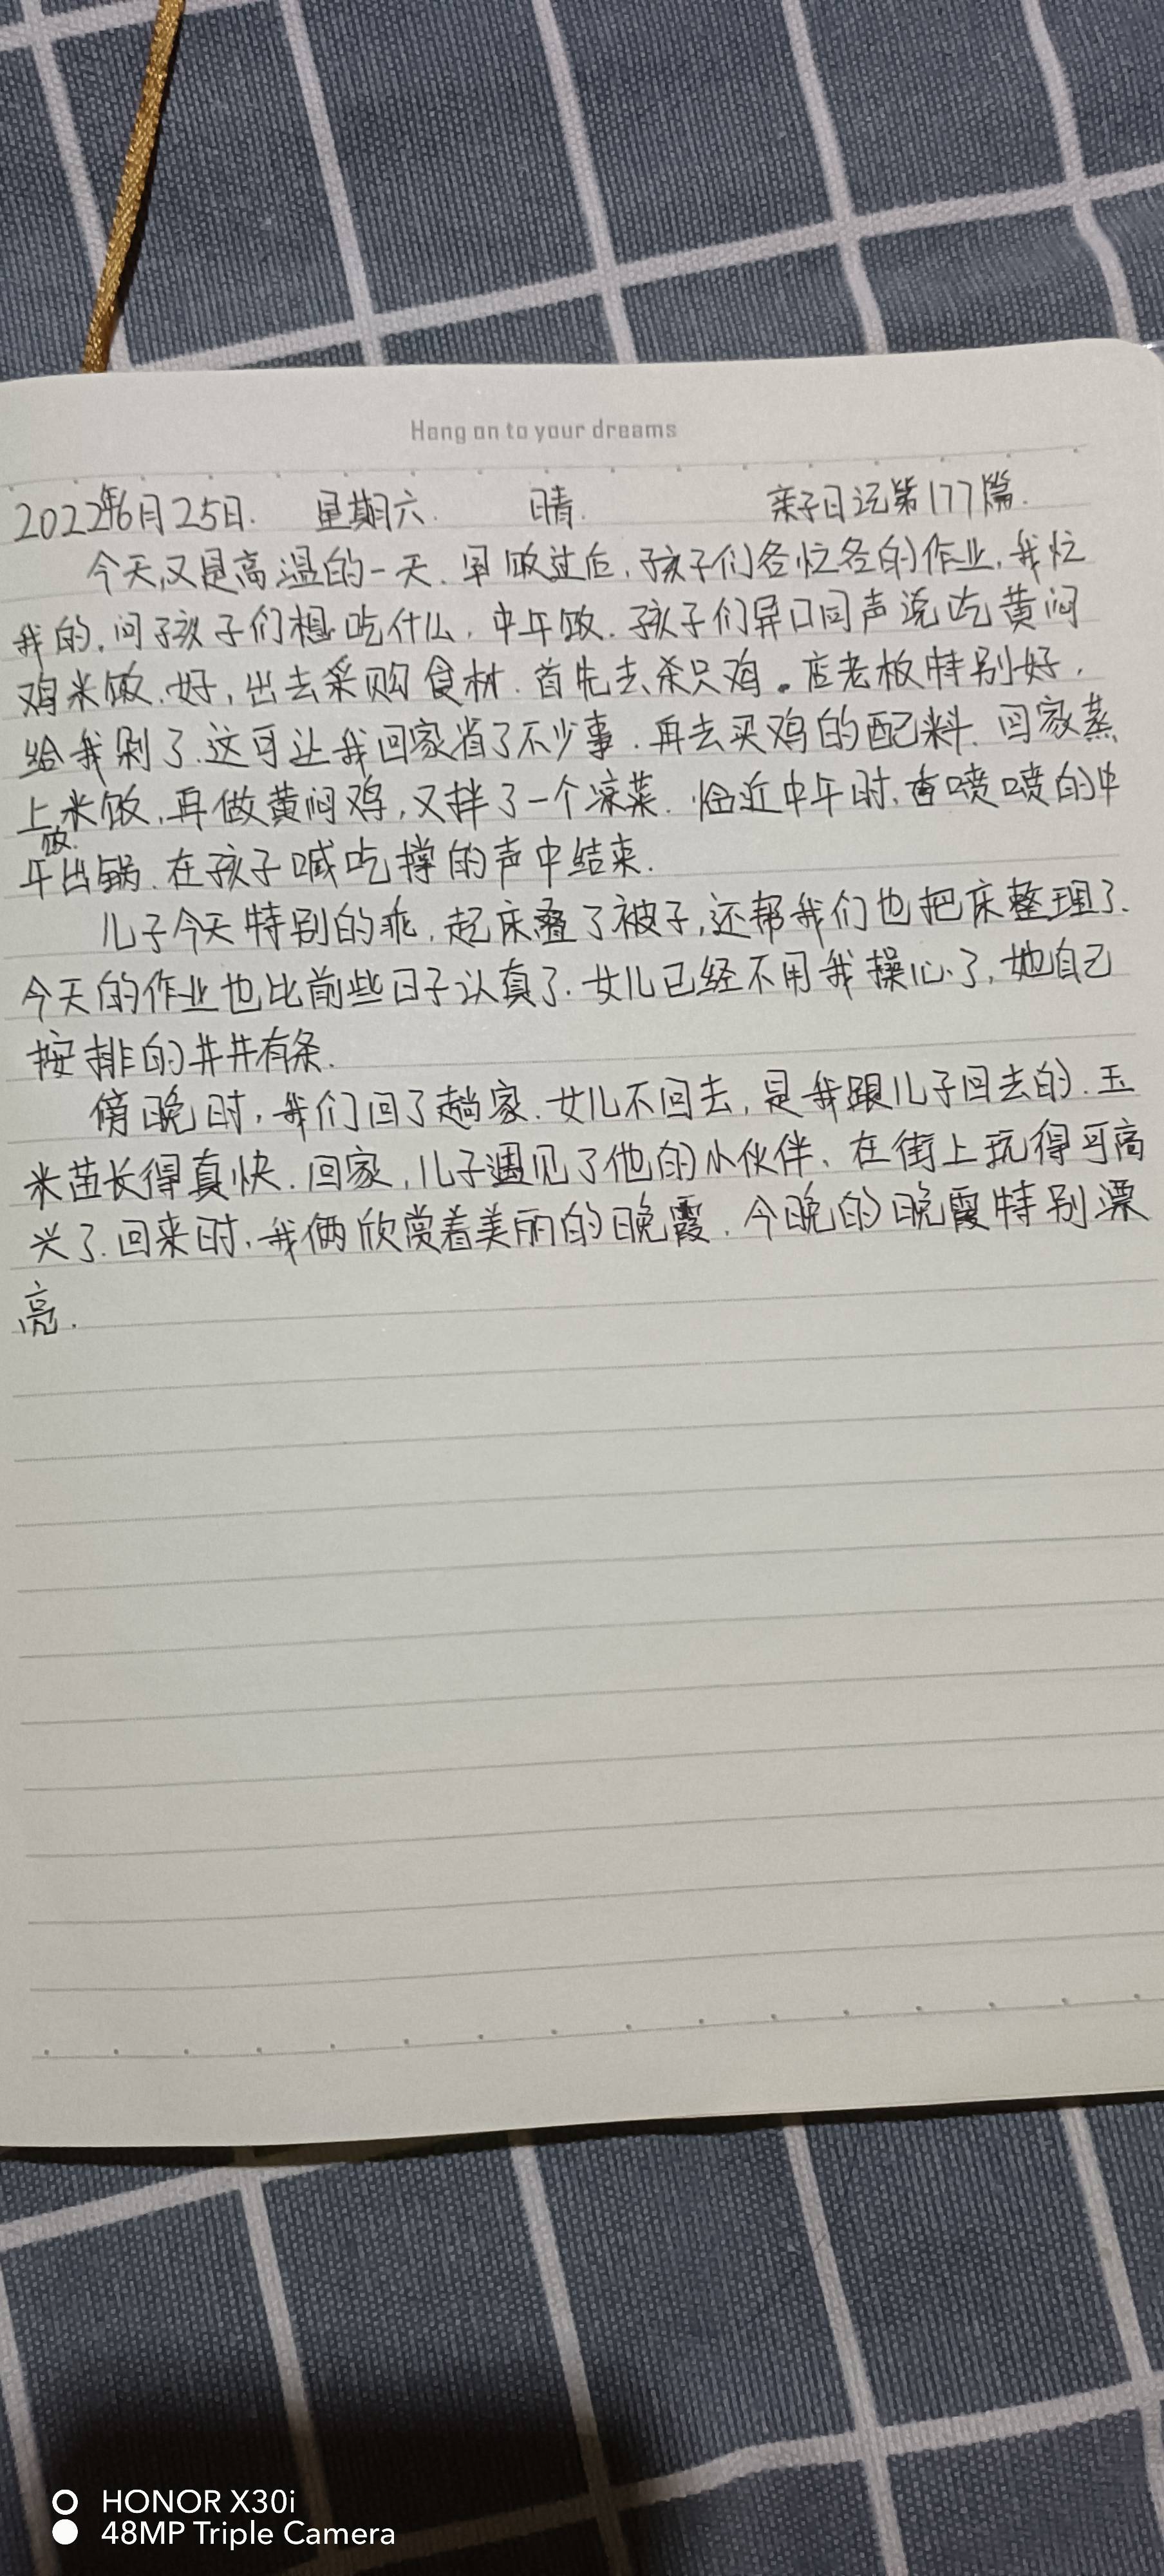 Hang on to your dreams
2022年6月25日. 星期六. 晴. 亲子日记第177篇.
今天,又是高温的一天.早饭过后,孩子们各忙各的作业,我忙
我的,问孩子们想吃什么,中午饭.孩子们异口同声说吃黄闷
鸡米饭.好,出去采购食材.首先去杀只鸡。店老板特别好,
给我剁了.这可让我回家省了不少事.再去买鸡的配料.回家蒸
上米饭,再做黄闷鸡,又拌了一个凉菜.临近中午时,香喷喷的中
午饭出锅.在孩子喊吃撑的声中结束.
儿子今天特别的乖,起床叠了被子,还帮我们也把床整理了.
今天的作业也比前些日子认真了.女儿已经不用我操心了,她自己
按排的井井有条.
傍晚时,我们回了趟家.女儿不回去,是我跟儿子回去的.玉
米苗长得真快.回家,儿子遇见了他的小伙伴、在街上玩得可高
兴了.回来时,我俩欣赏着美丽的晚霞.今晚的晚霞特别漂
亮.
HONOR X30i
48MP Triple Camera